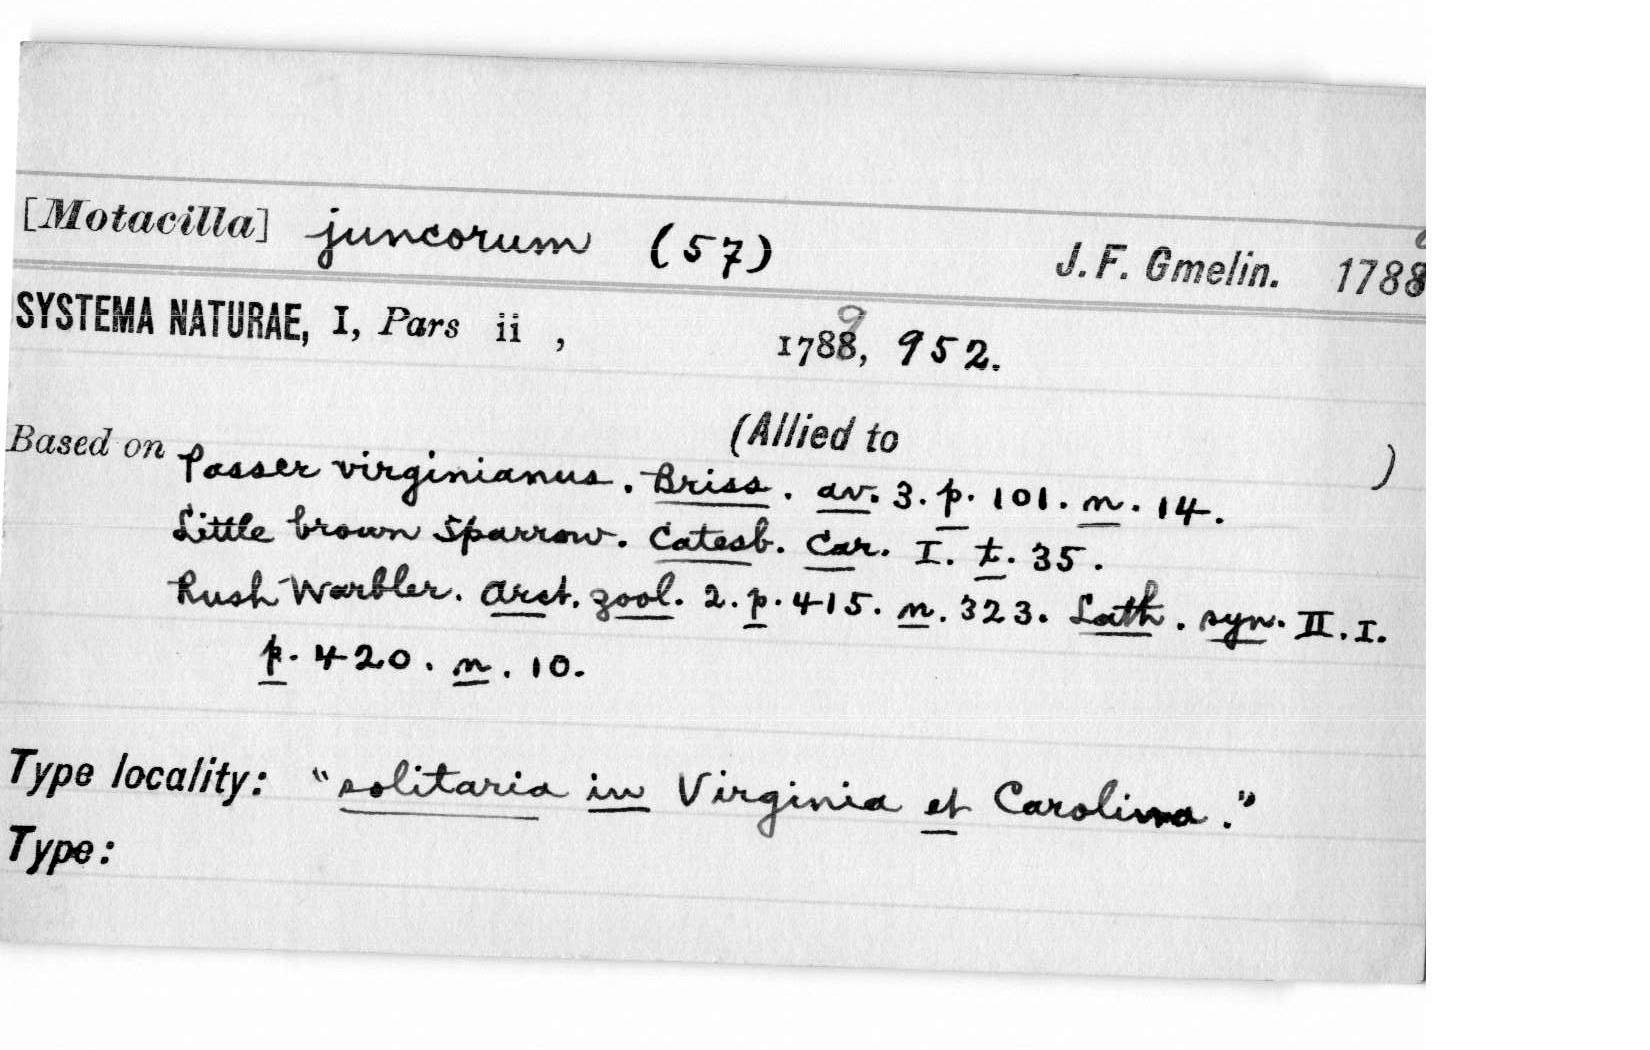 [Motacilla] juncorum (57) J. F. Gmelin. 1788
SYSTEMA NATURAE, I, Pars ii , 1789, 952.
(Allied to )
Based on Passer virginianus. Briss. av. 3. p. 101. n. 14.
Little brown Sparrow. Catesb. Car. I. t. 35.
Rush Warbler. Arct. zool. 2. p. 415. n. 323. Lath. syn. II. I.
p. 420. n. 10.
Type locality: "solitaria in Virginia et Carolina."
Type: